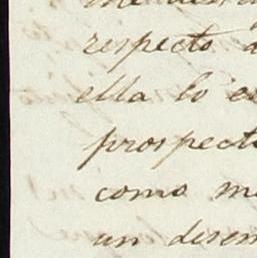 respecto a
ella lo es
prospecto
como me
un disem